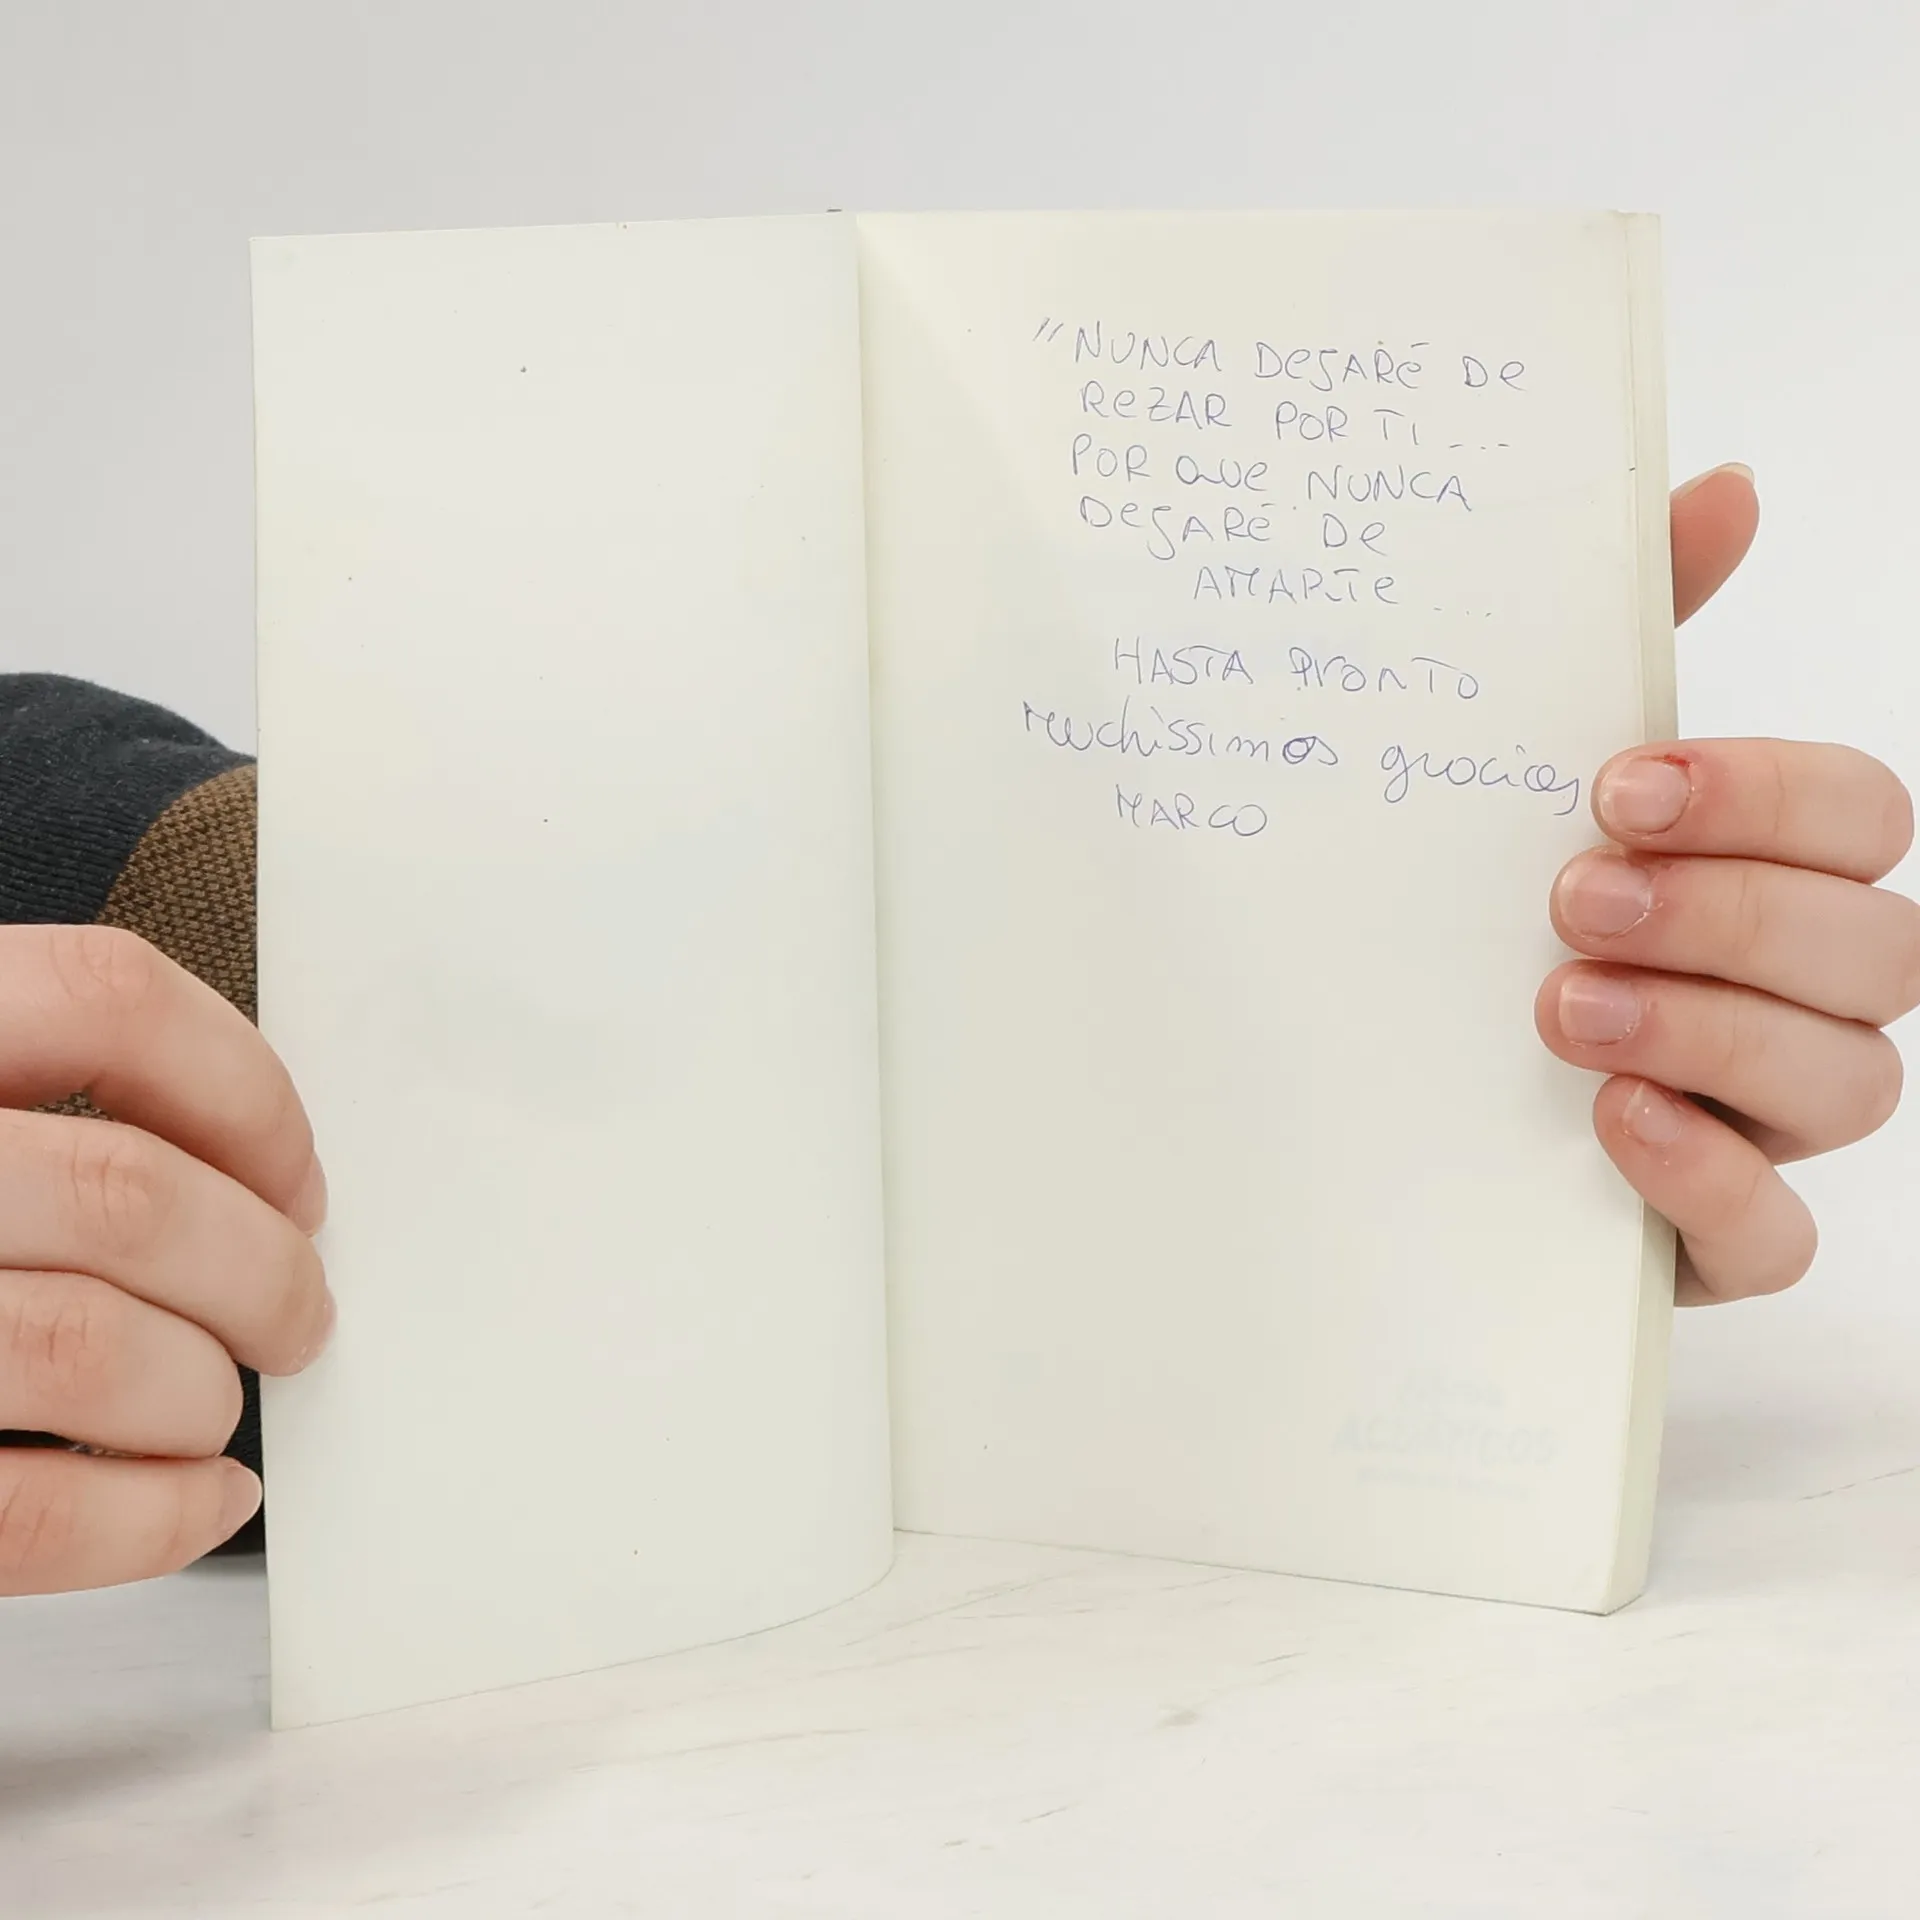 "NUNCA DEJARÉ DE
REZAR POR TI ...
POR QUE NUNCA
DEJARÉ DE
AMARTE ...
HASTA PRONTO
Muchissimos gracias
MARCO